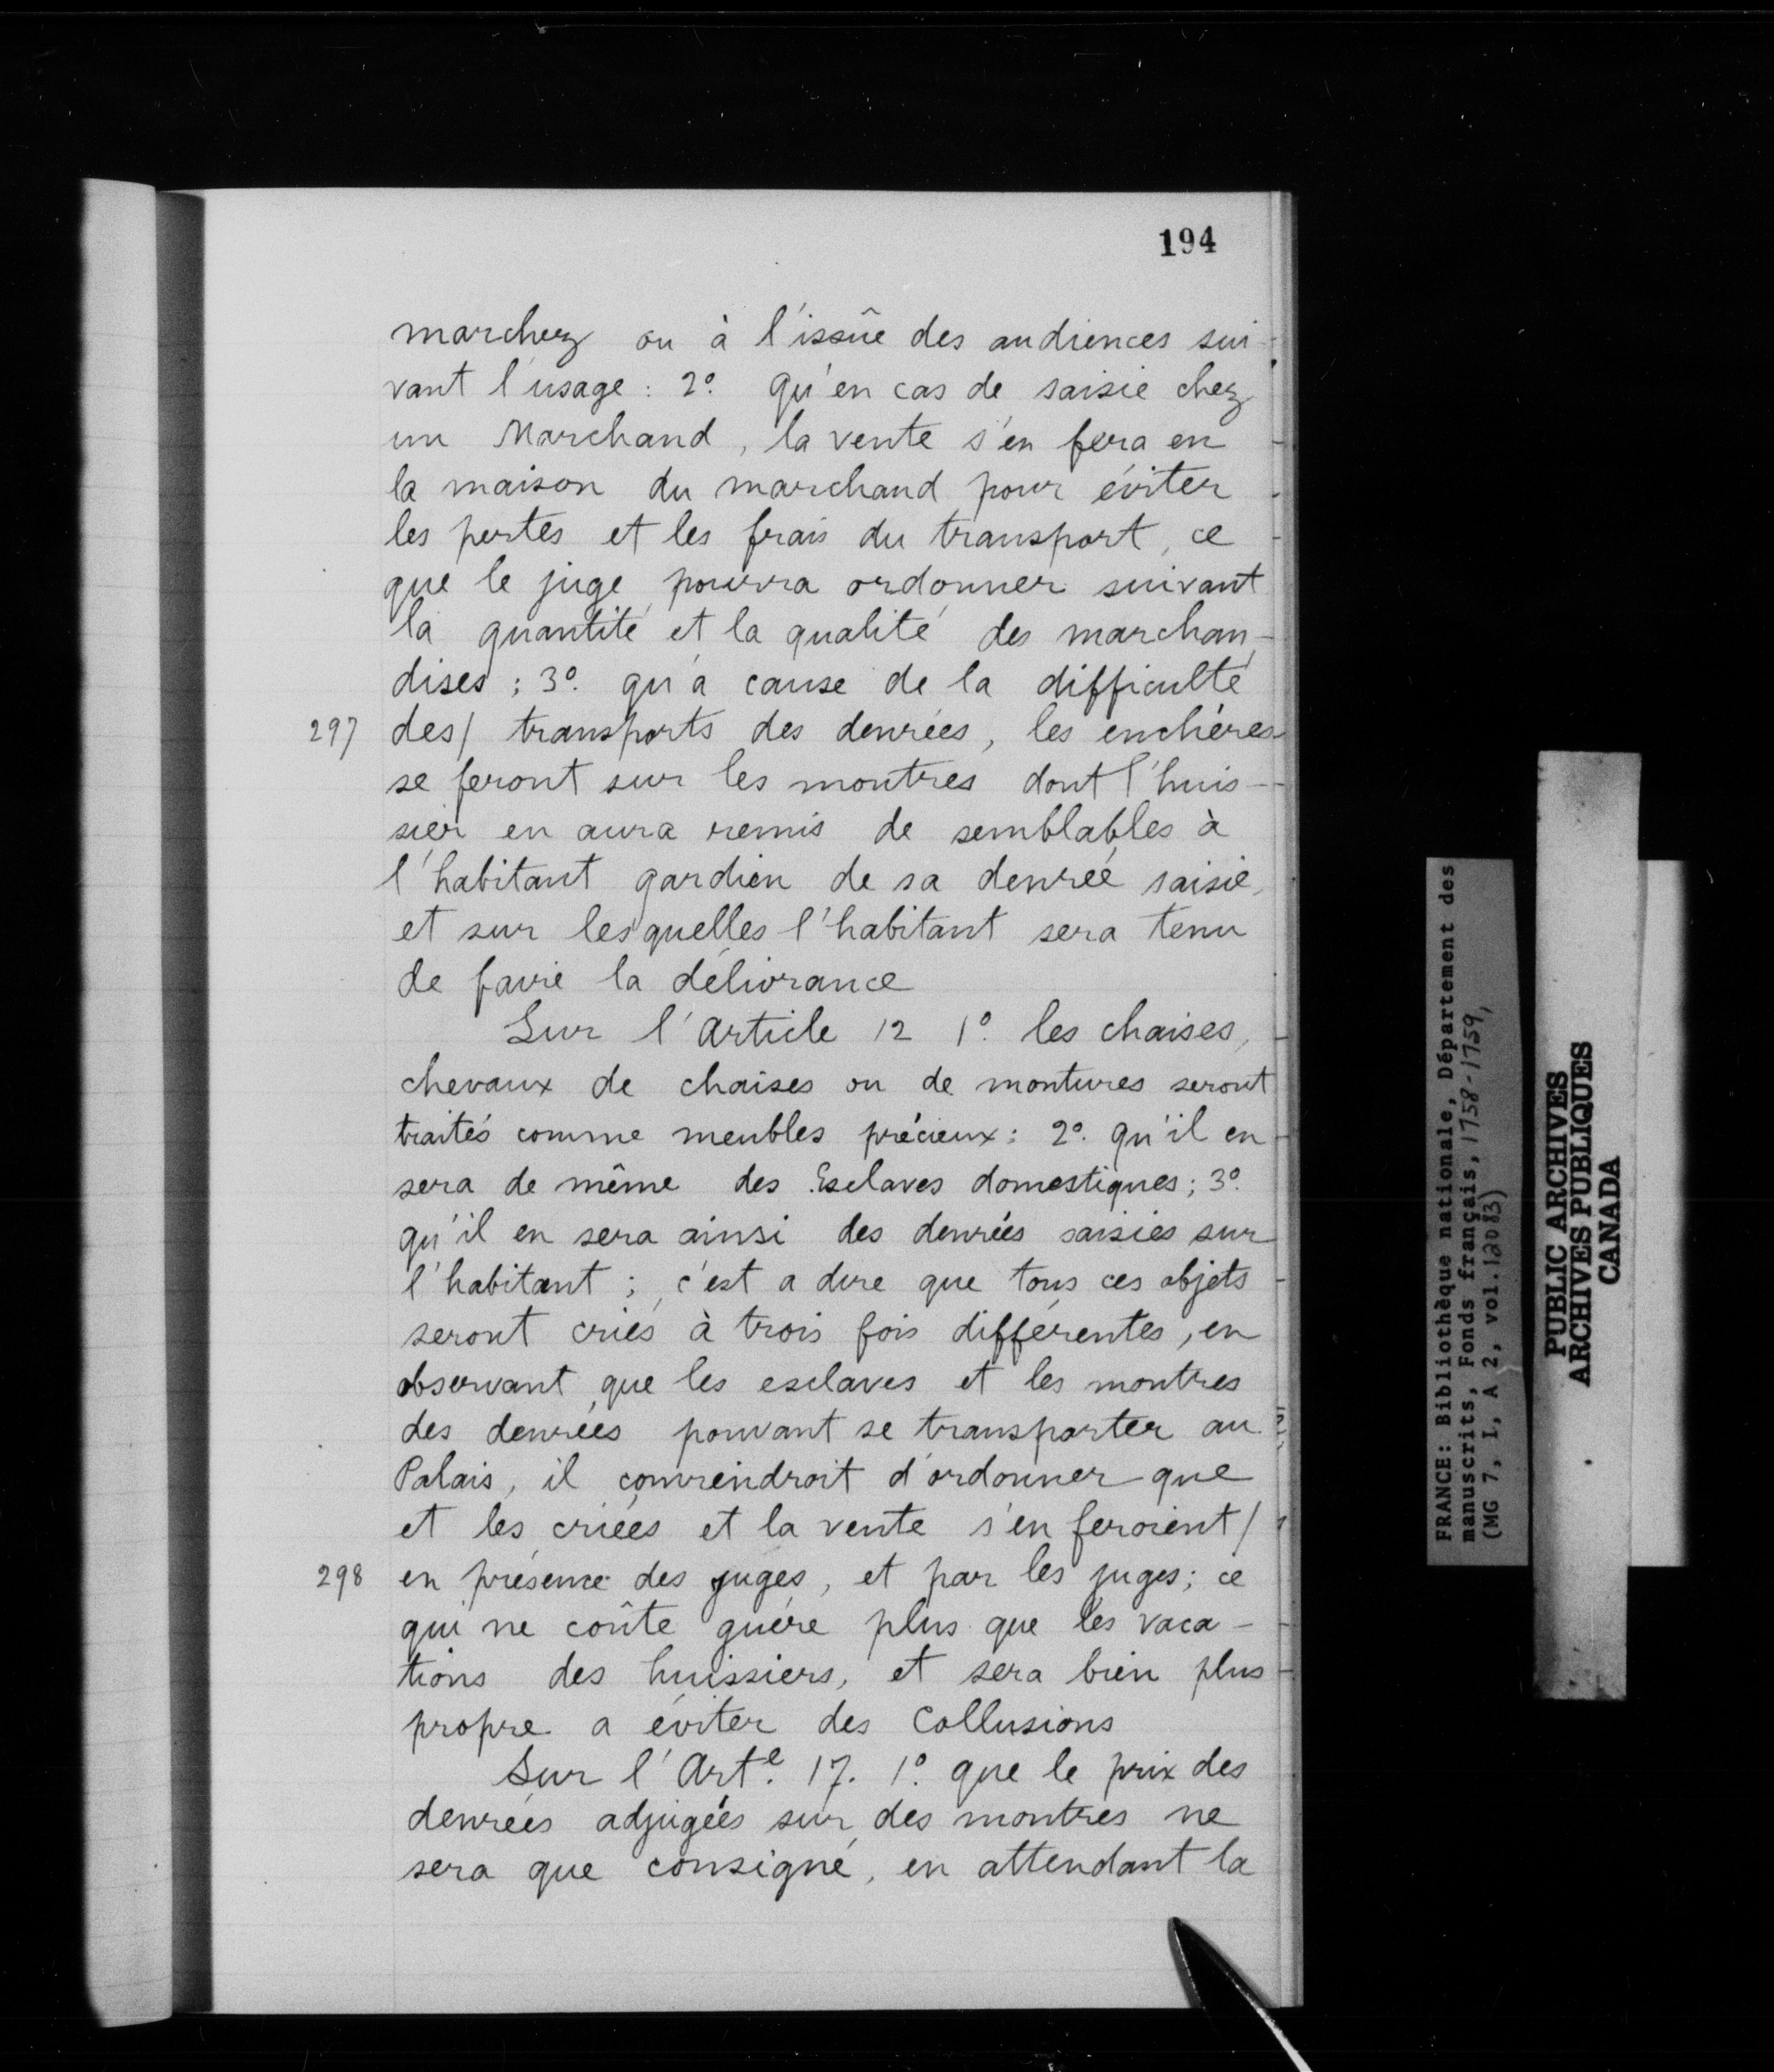 194
marchez ou à l'issûe des audiences sui-
vant l'usage : 2º. qu'en cas de saisie chez
un Marchand, la vente s'en fera en
la maison du marchand pour éviter
les pertes et les frais du transport, ce
que le juge pourra ordonner suivant
la quantité et la qualité des marchan-
dises ; 3º. qu'à cause de la difficulté
297 des/ transports des denrées, les enchères
se feront sur les montres dont l'huis-
sier en aura remis de semblables à
l'habitant gardien de sa denrée saisie,
et sur lesquelles l'habitant sera tenu
de faire la délivrance
Sur l'Article 12 1º. les chaises,
chevaux de chaises ou de montures seront
traités comme meubles précieux : 2º. qu'il en
sera de même des Esclaves domestiques ; 3º.
qu'il en sera ainsi des denrées saisies sur
l'habitant ; c'est a dire que tous ces objets
seront criés à trois fois différentes, en
observant que les esclaves et les montres
des denrées pouvant se transporter au
Palais, il conviendroit d'ordonner que
et les criées et la vente s'en feroient/
298 en présence des juges, et par les juges ; ce
qui ne coûte guère plus que les vaca-
tions des huissiers, et sera bien plus
propre a éviter des Collusions
Sur l'Art.e 17. 1º. que le prix des
denrées adjugées sur des montres ne
sera que consigné, en attendant la
FRANCE: Bibliothèque nationale, Département des
manuscrits, Fonds français, 1758-1759,
(MG 7, I, A 2, vol. 12083)
PUBLIC ARCHIVES
ARCHIVES PUBLIQUES
CANADA